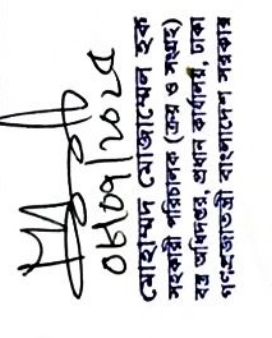 06/09/2024
মোহাম্মদ মোজাম্মেল হক
সহকারী পরিচালক (ক্রয় ও সংগ্রহ)
বস্ত্র অধিদপ্তর, প্রধান কার্যালয়, ঢাকা
গণপ্রজাতন্ত্রী বাংলাদেশ সরকার